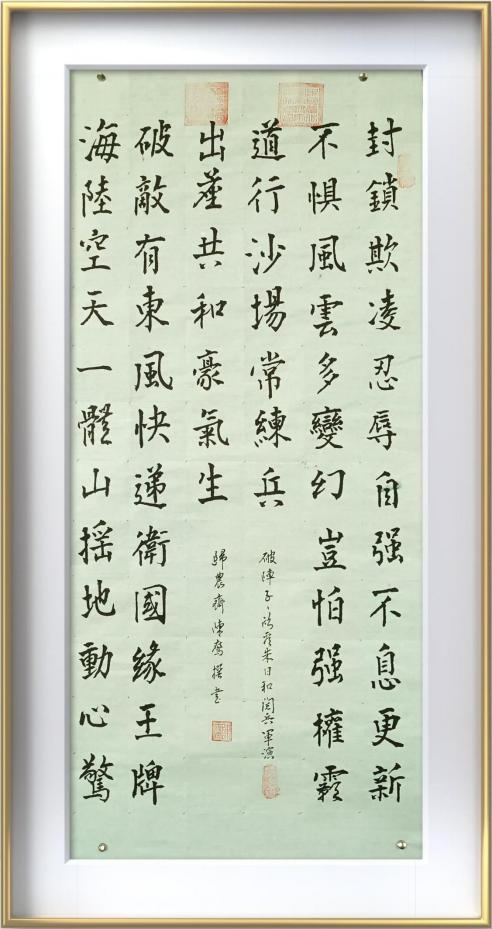 封鎖欺凌忍辱自强不息更新
不惧風雲多變幻豈怕强權霸
道行沙場常練兵
海陸空天一體山摇地動心驚
破敵有東風快遞衛國緣王牌
出座共和豪氣生
破陣子 朱日和閲兵軍演
歸農齋陳 撰書